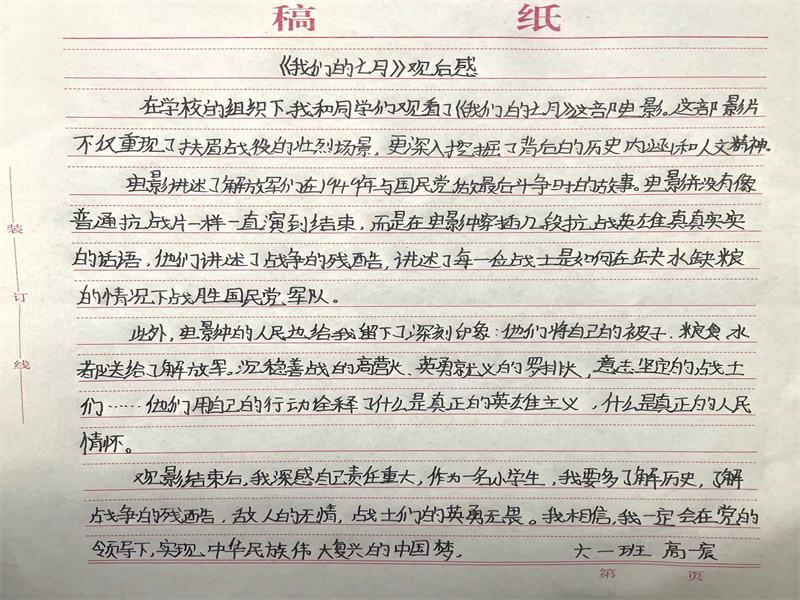 稿 纸
《我们的七月》观后感
在学校的组织下,我和同学们观看了《我们的七月》这部电影。这部影片
不仅重现了扶眉战役的壮烈场景,更深入挖掘了背后的历史内涵和人文精神。
电影讲述了解放军们在1949年与国民党做最后斗争时的故事。电影并没有像
普通抗战片一样一直演到结束,而是在电影中穿插几段抗战英雄真真实实
的话语。他们讲述了战争的残酷,讲述了每一位战士是如何在缺水缺粮
的情况下战胜国民党军队。
此外,电影中的人民也给我留下了深刻印象:他们将自己的被子、粮食、水
都送给了解放军。沉稳善战的高营长、英勇就义的罗排长,意志坚定的战士
们……他们用自己的行动诠释了什么是真正的英雄主义,什么是真正的人民
情怀。
观影结束后,我深感自己责任重大,作为一名小学生,我要多了解历史,了解
战争的残酷,敌人的无情,战士们的英勇无畏。我相信,我一定会在党的
领导下,实现中华民族伟大复兴的中国梦。 六一班 高一宸
第 页
装
订
线